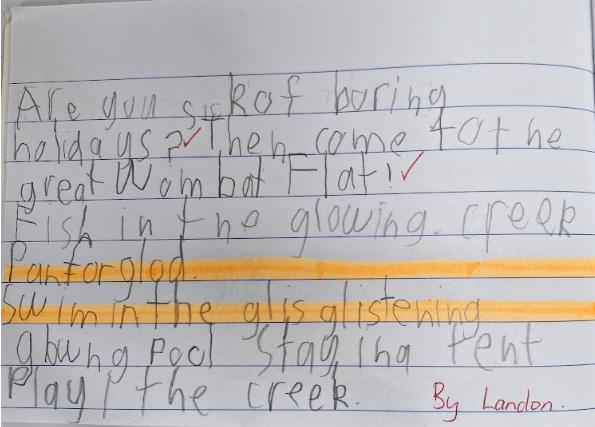 Are you sick of boring
holidays? Then come to the
great Wombat Flat!
Fish in the glowing. creek
Pan for glod.
Swim in the glis glistening
pool Stay in a tent
Play the creek. By Landon.